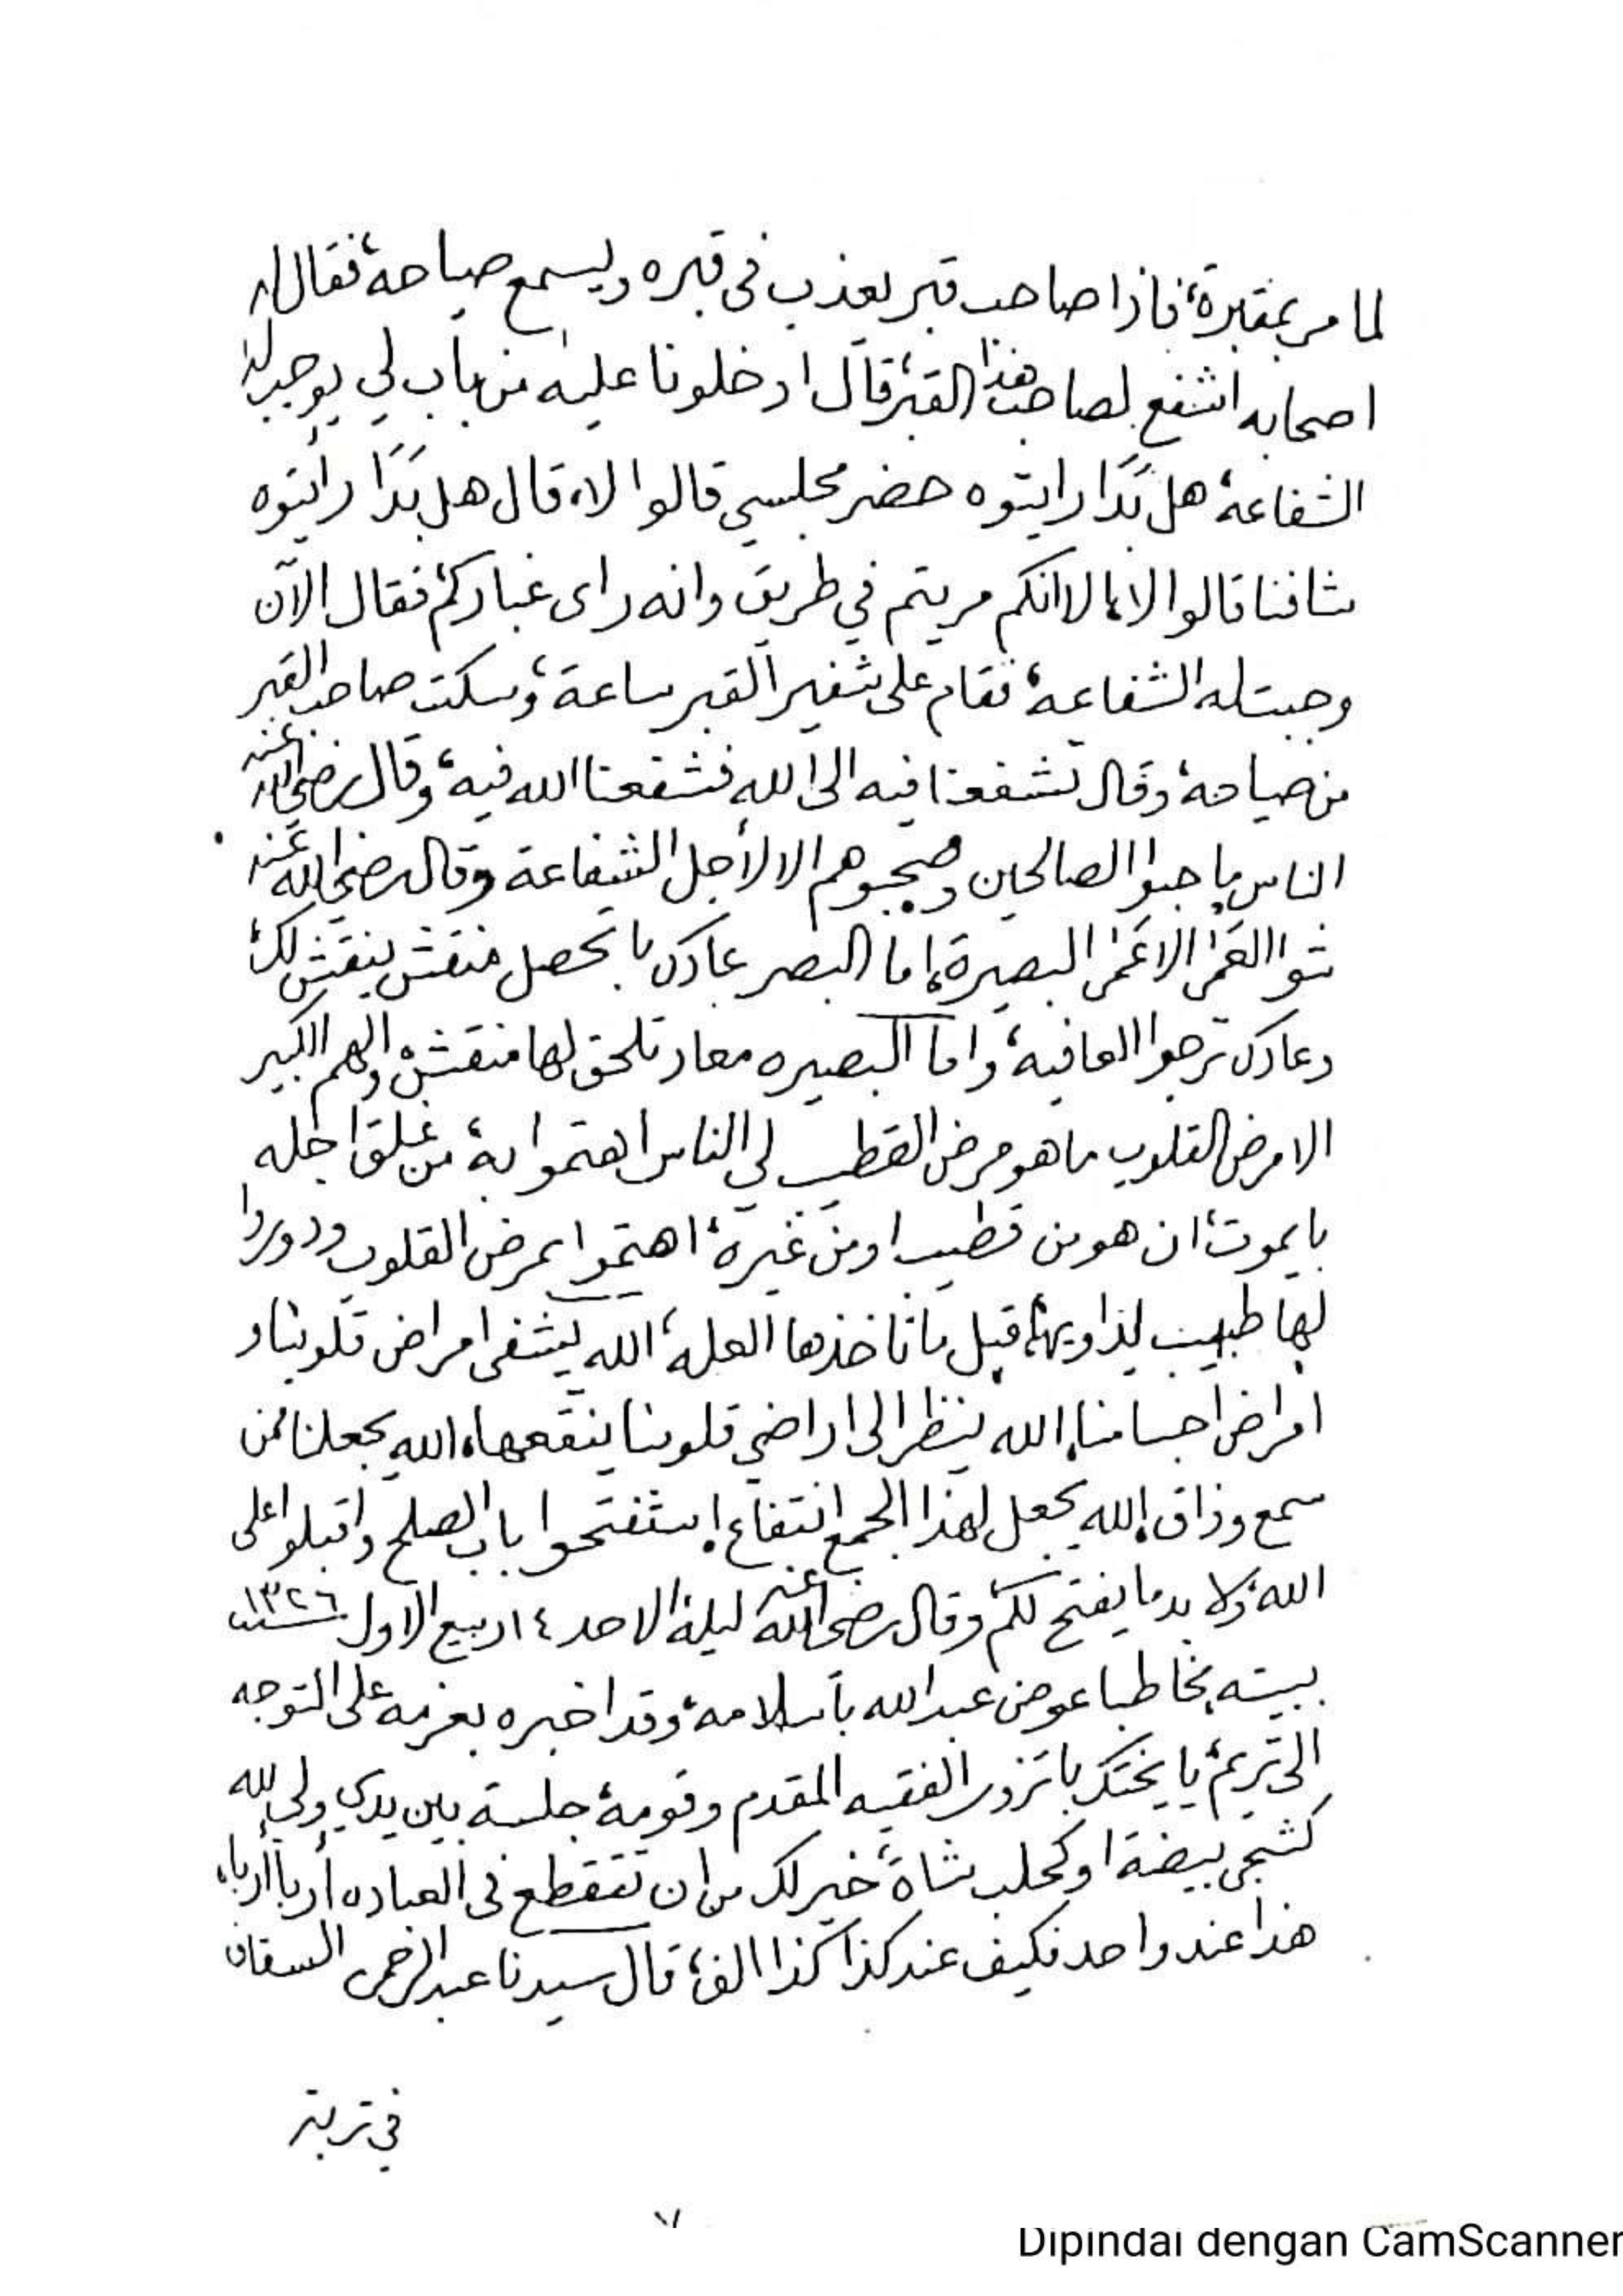 لما مر بمقبرة، فاذا صاحب قبر يعذب في قبره ويسمع صياحه، فقال له
اصحابه اشفع لصاحب هذا القبر، قال ادخلونا عليه من باب لي يوجب له
الشفاعة، هل بَدَا رايتوه حضر مجلسي قالوا لا، قال هل بَدَا رايتوه
شافنا قالوا لا، الا انكم مريتم في طريق وانه راى غباركم، فقال الآن
وجبت له الشفاعة، فقام على شفير القبر ساعة، وسكت صاحب القبر
من صياحه، وقال تشفعنا فيه الى الله فشفعنا الله فيه، وقال رضي الله عنه
الناس ما حبوا الصالحين وصحبوهم الا لأجل الشفاعة وقال رضي الله عنه
شوا العَمَى الا عَمَى البصيرة، اما البصر عادك با تحصل منقش ينقش لك،
وعادك ترجوا العافية، واما البصيره معاد تلحق لها منقش، والهم الكبير
الا مرض القلوب ما هو مرض القطيب لي الناس اهتموا به، من غلق اجله
با يموت، ان هو من قطيب او من غيره، اهتموا بمرض القلوب ودوروا
لها طبيب يداويها، قبل ما تاخذها العلة، الله يشفي امراض قلوبنا و
امراض اجسامنا، الله ينظر الى اراضي قلوبنا ينقعها، الله يجعلنا ممن
سمع وذاق، الله يجعل لهذا الجمع انتفاع، استفتحوا باب الصلح واقبلوا على
الله، ولا بد ما يفتح لكم، وقال رضي الله عنه ليلة الاحد ١٤ ربيع الاول سنة ١٣٢٦
ببيته، مخاطبا عوض عبدالله باسلامه، وقد اخبره بعزمه على التوجه
الى تريم، يا بختك با تزور الفقيه المقدم وقومه، جلسة بين يدي ولي لله
كشجي بيضة او كحلب شاة، خير لك من ان تتقطع في العباده أربا أربا،
هذا عند واحد فكيف عند كذا كذا الف، قال سيدنا عبدالرحمن السقاف
في تربة
٧
Dipindai dengan CamScanner